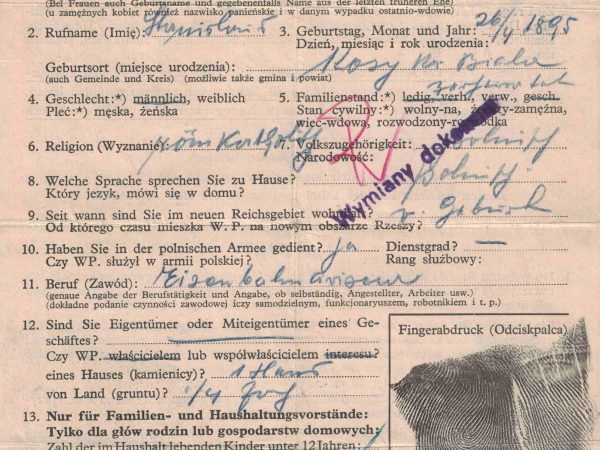 (Bei Frauen auch Geburtsname und gegebenenfalls Name aus der letzten früheren Ehe)
(u zamężnych kobiet również nazwisko panieńskie i w danym wypadku ostatnio-wdowie)
2. Rufname (Imię): Stanislaus 3. Geburtstag, Monat und Jahr: 26/4 1895
Dzień, miesiąc i rok urodzenia:
Geburtsort (miejsce urodzenia): Kozy Kr. Biala
(auch Gemeinde und Kreis) (możliwie także gmina i powiat)
4. Geschlecht:*) männlich, weiblich 5. Familienstand:*) ledig, verh., verw., gesch.
Płeć:*) męska, żeńska Stan cywilny:*) wolny-na, żonaty-zamężna,
wiec-wdowa, rozwodzony-rozwódka
6. Religion (Wyznanie): röm Katholisch 7. Volkszugehörigkeit: Polnisch
Narodowość:
8. Welche Sprache sprechen Sie zu Hause? Polnisch
Który język, mówi się w domu?
Wymiany dokonano
9. Seit wann sind Sie im neuen Reichsgebiet wohnhaft? v. Geburt
Od którego czasu mieszka W. P. na nowym obszarze Rzeszy?
10. Haben Sie in der polnischen Armee gedient? ja Dienstgrad? —
Czy WP. służył w armii polskiej? Rang służbowy:
11. Beruf (Zawód): Eisenbahn
(genaue Angabe der Berufstätigkeit und Angabe, ob selbständig, Angestellter, Arbeiter usw.)
(dokładne podanie czynności zawodowej iczy samodzielnym, funkcjonaryuszem, robotnikiem i t. p.)
12. Sind Sie Eigentümer oder Miteigentümer eines Ge-
schäftes?
Czy WP. właścicielem lub współwłaścicielem interesu?
eines Hauses (kamienicy)? 1 Haus
von Land (gruntu)? 1/4
Fingerabdruck (Odciskpalca)
13. Nur für Familien- und Haushaltungsvorstände:
Tylko dla głów rodzin lub gospodarstw domowych:
Zahl der im Haushalt lebenden Kinder unter 12 Jahren: